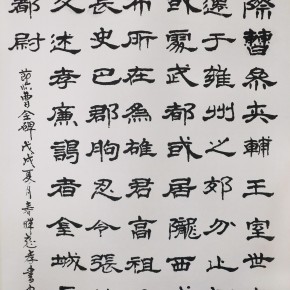 際曹參夾輔王室世
遷于雍州之郊分止
或處武都或居隴西
布所在為雄君高祖
長史巴郡朐忍令張
父述孝廉謁者金城
都尉
節臨曹全碑戊戌夏月春暉慈孝書